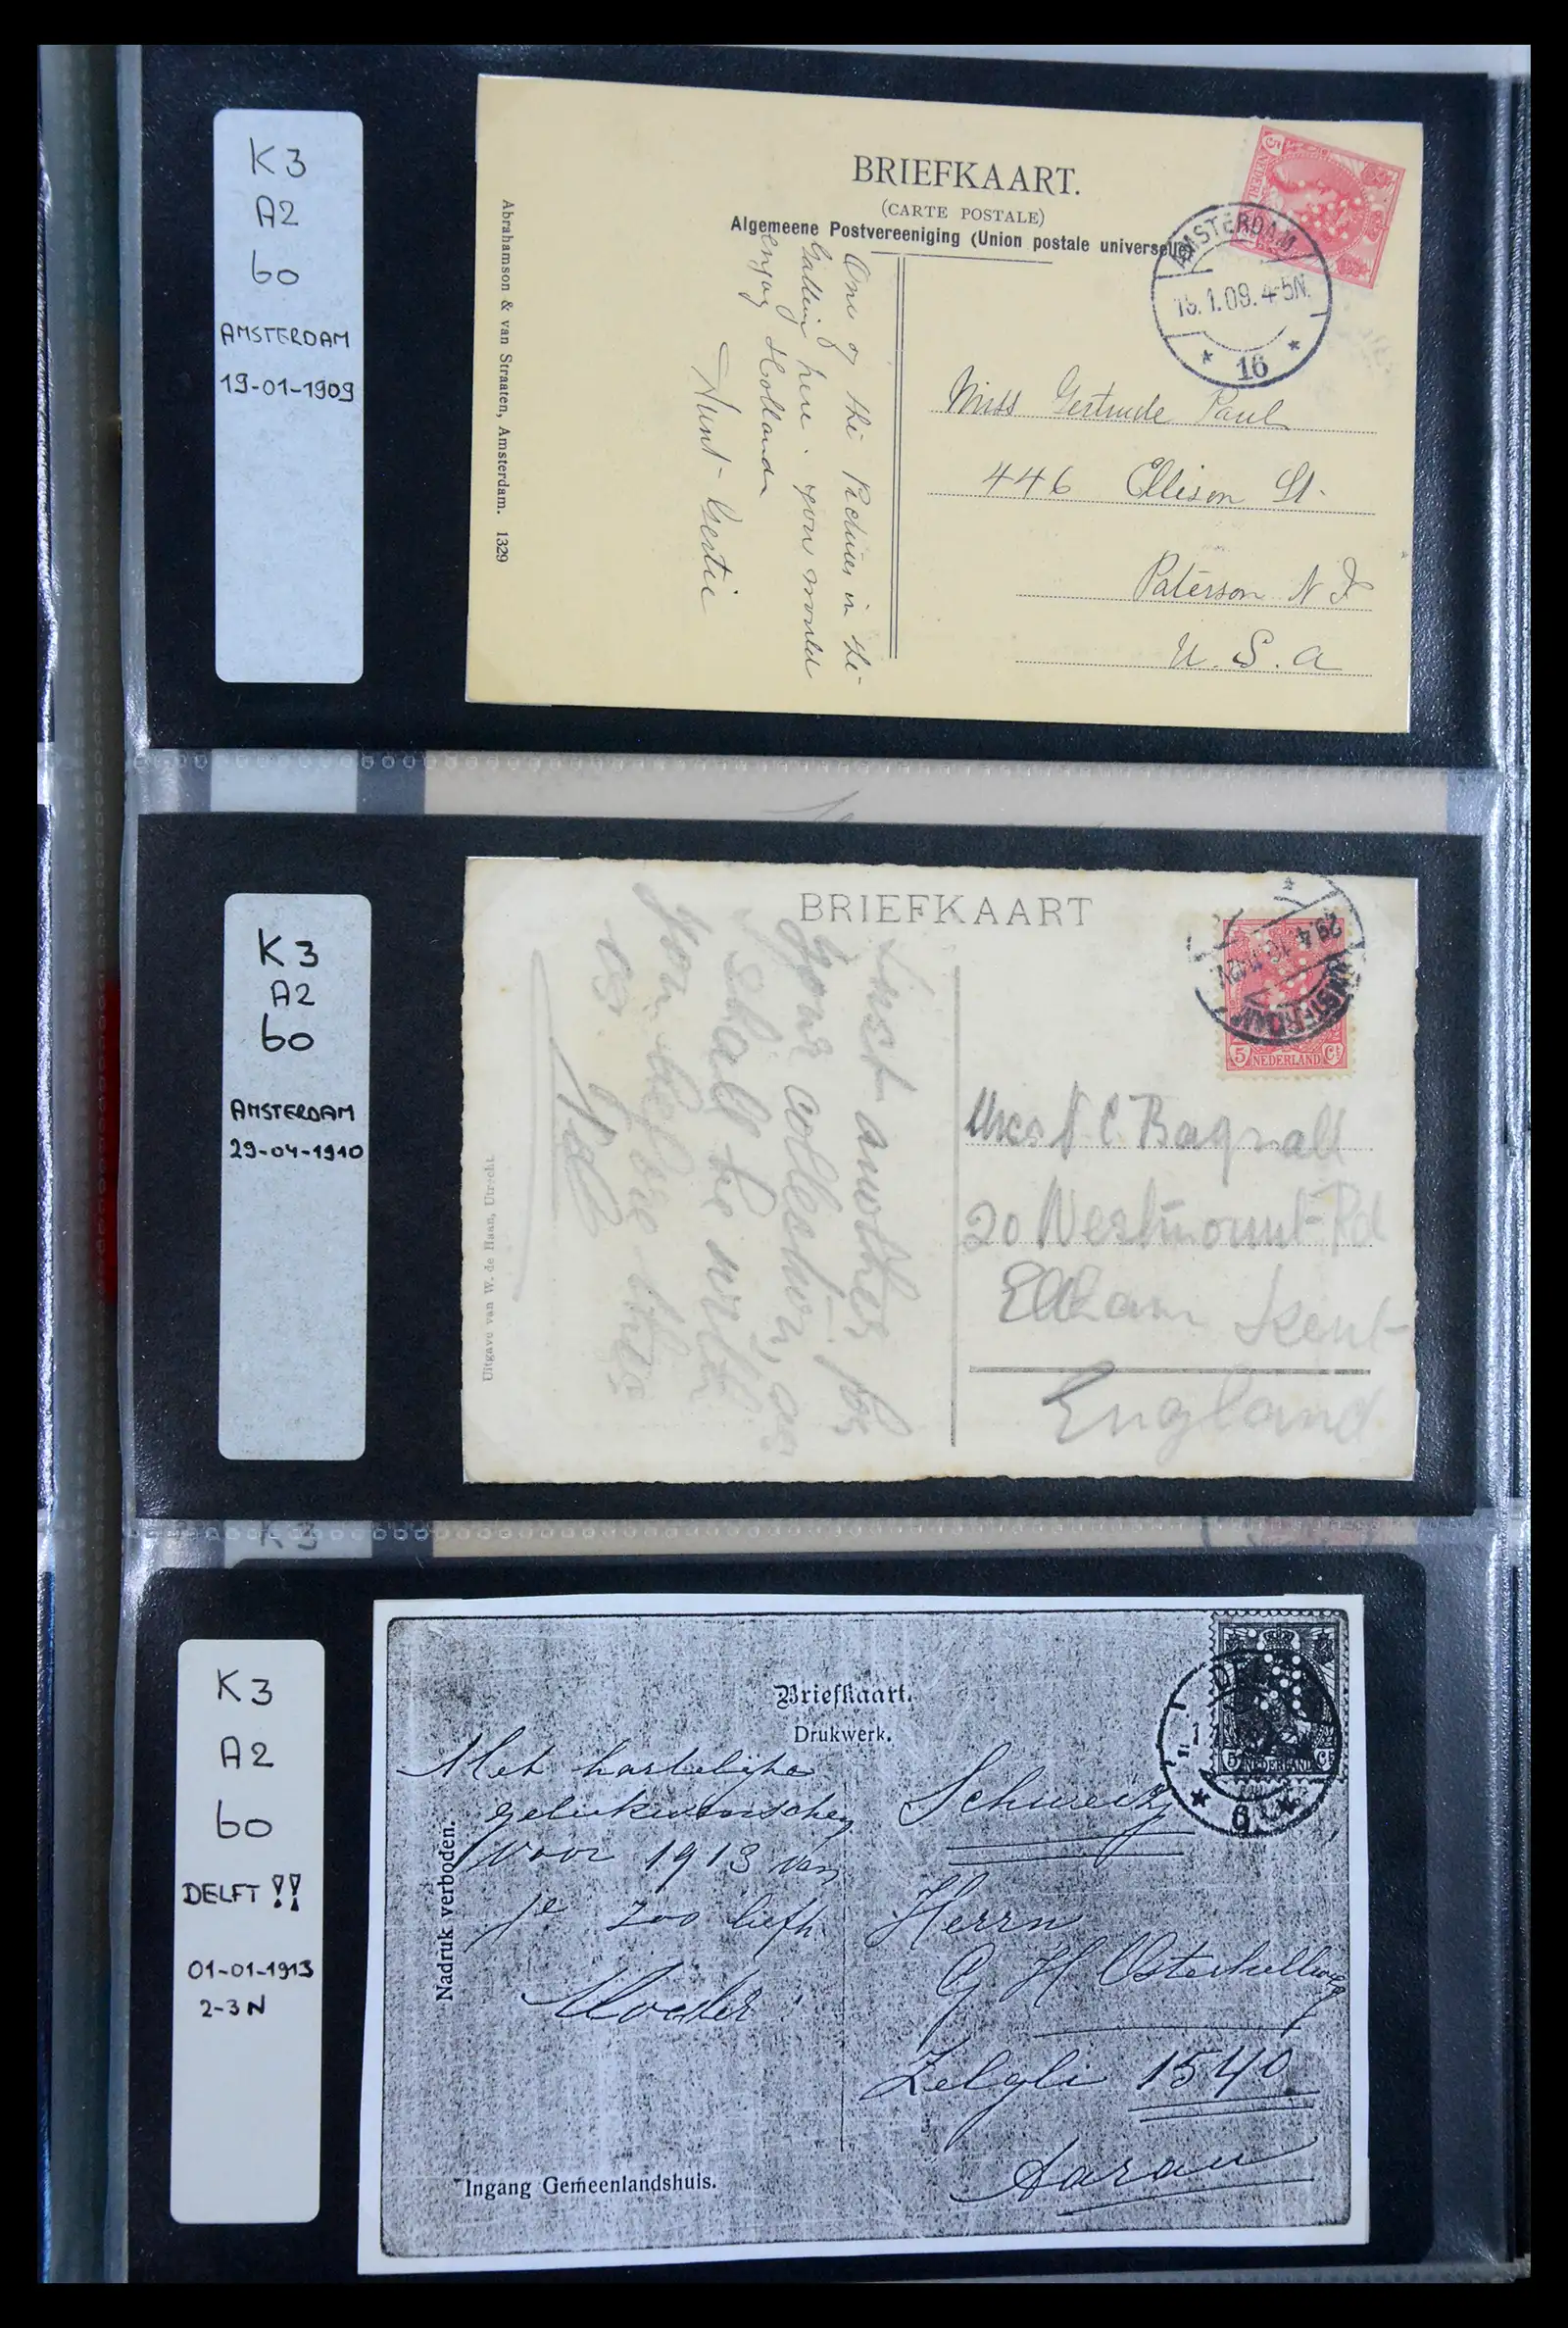 K3
A2
60
AMSTERDAM
19-01-1909
BRIEFKAART.
(CARTE POSTALE)
Algemeene Postvereeniging (Union postale universelle)
5
NEDERL
AMSTERDAM
1.09. 4-5N.
* 16 *
One of the Pictures in the
Gallery here. you would
enjoy Holland
Aunt Gertie
Abrahamson & van Straaten, Amsterdam. 1329
Miss Gertrude Paul
446 Ellison St.
Paterson N J
U. S. A
K3
A2
60
AMSTERDAM
29-04-1910
BRIEFKAART
AMSTERDAM
29.4.10
5 NEDERLAND Ct
Just another for
your collection, as
shall be with
you before
Uitgave van W. de Haan, Utrecht.
C Bagnall
20 Westmount Rd
Eltham Kent
England
K3
K3
A2
60
DELFT !!
01-01-1913
2-3N
Briefkaart.
Drukwerk.
5 NEDERLAND Ct
* 6 *
Met hartelijke
gelukwenschen
voor 1913 van
Nadruk verboden.
Schweiz
Herrn
G H
Zelgli 1540
Aarau
Ingang Gemeenlandshuis.